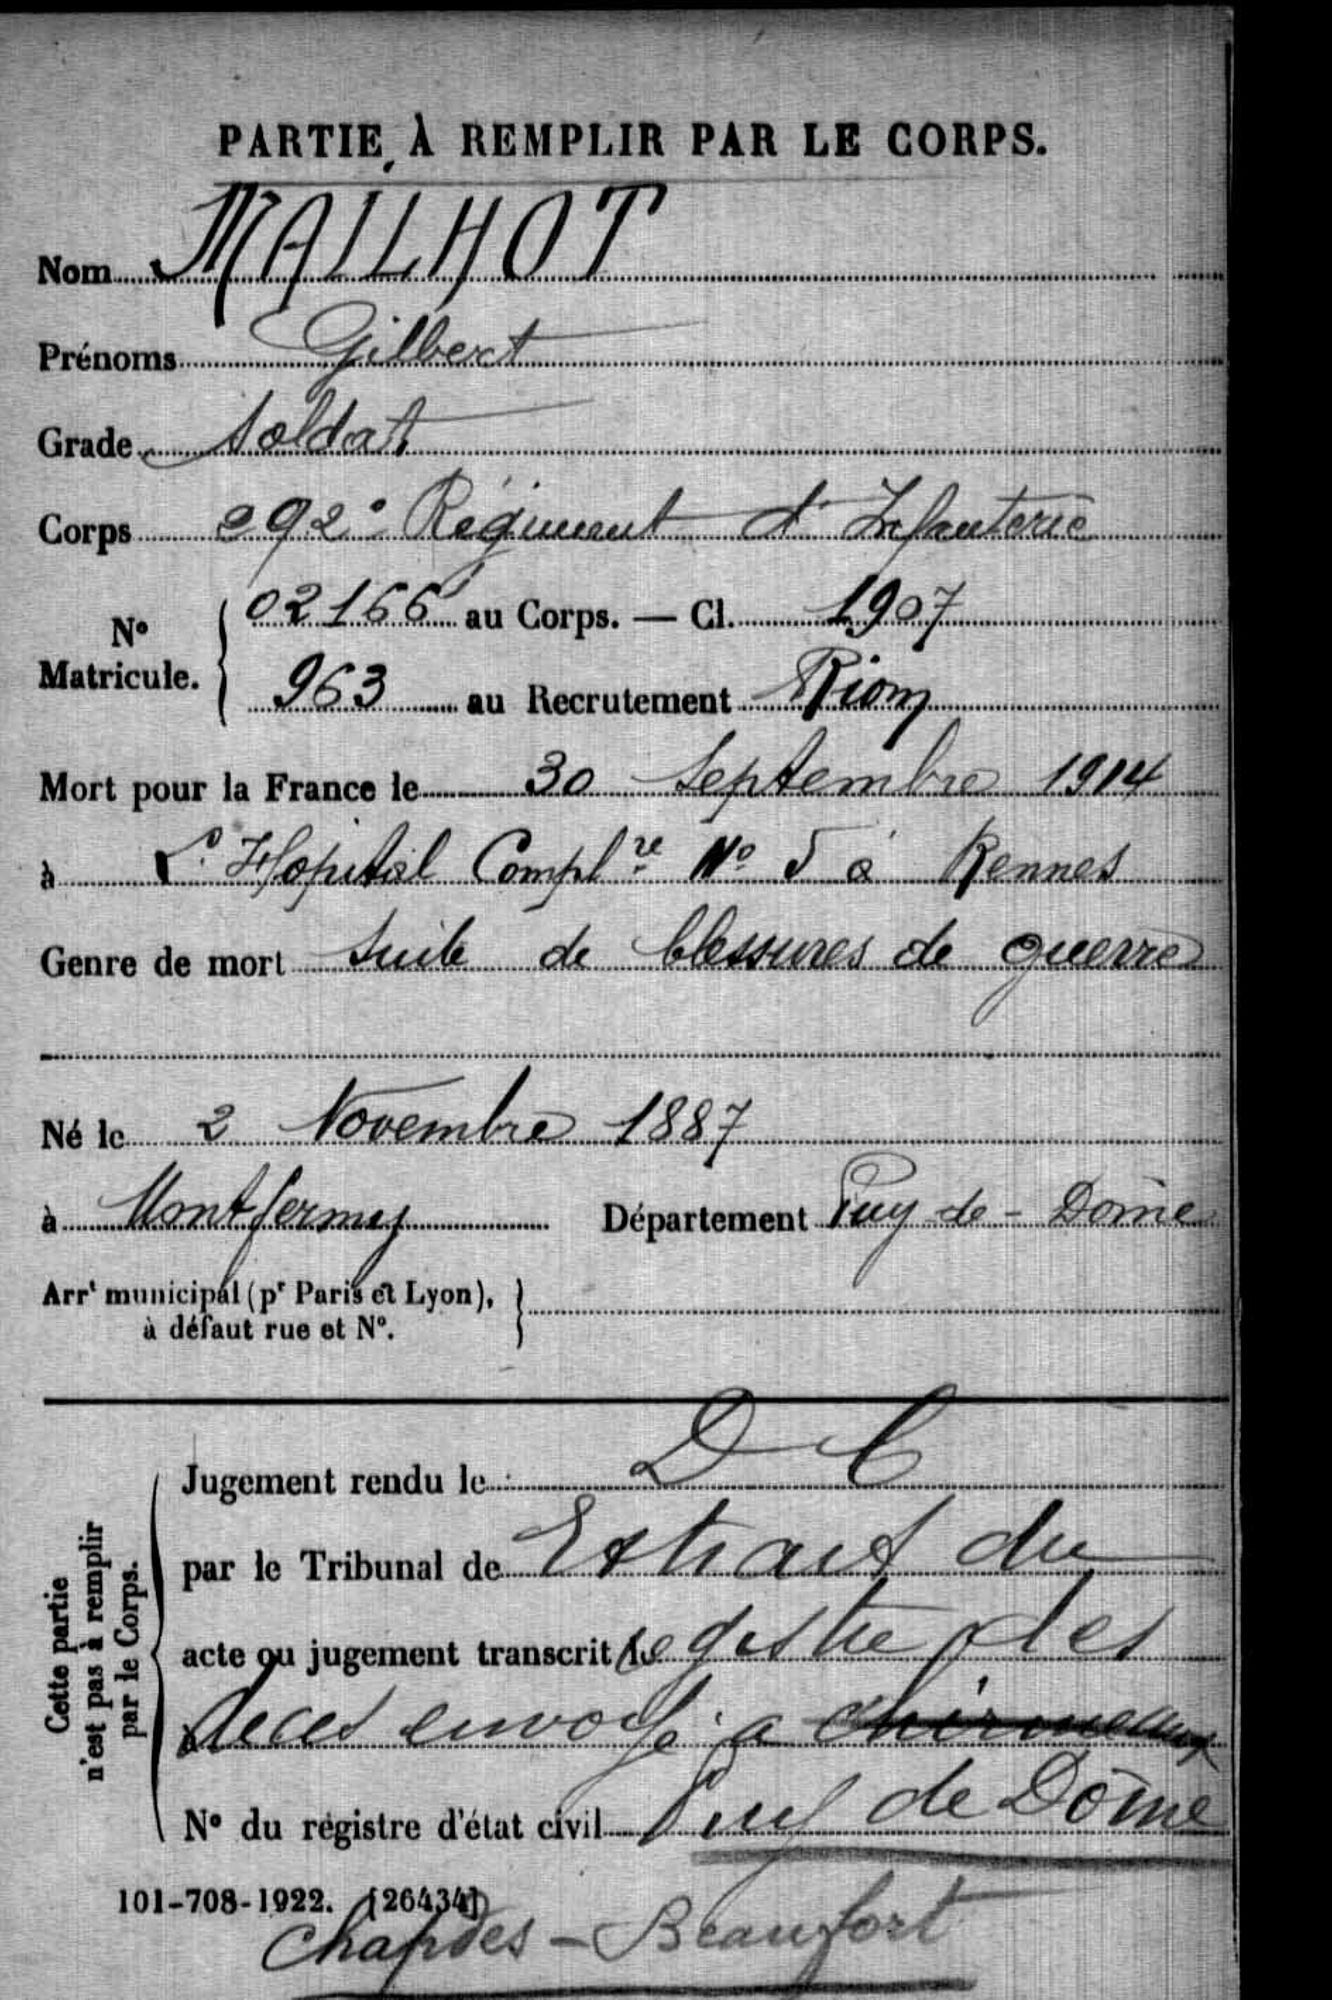 PARTIE À REMPLIR PAR LE CORPS.
Nom MAILHOT
Prénoms Gilbert
Grade Soldat
Corps 292e Régiment d'Infanterie
N° Matricule. { 02166 au Corps. — Cl. 1907
963 au Recrutement Riom
Mort pour la France le 30 Septembre 1914
à l'Hopital Complre No 5 à Rennes
Genre de mort Suite de blessures de guerre
Né le 2 Novembre 1887
à Montfermy Département Puy-de-Dôme
Arrt municipal (pr Paris et Lyon), à défaut rue et N°.
Cette partie n'est pas à remplir par le Corps.
Jugement rendu le D C
par le Tribunal de Extrait du
acte ou jugement transcrit le registre des
à décès envoyé à
N° du registre d'état civil Puy de Dôme
101-708-1922. [26434]
Chapdes-Beaufort